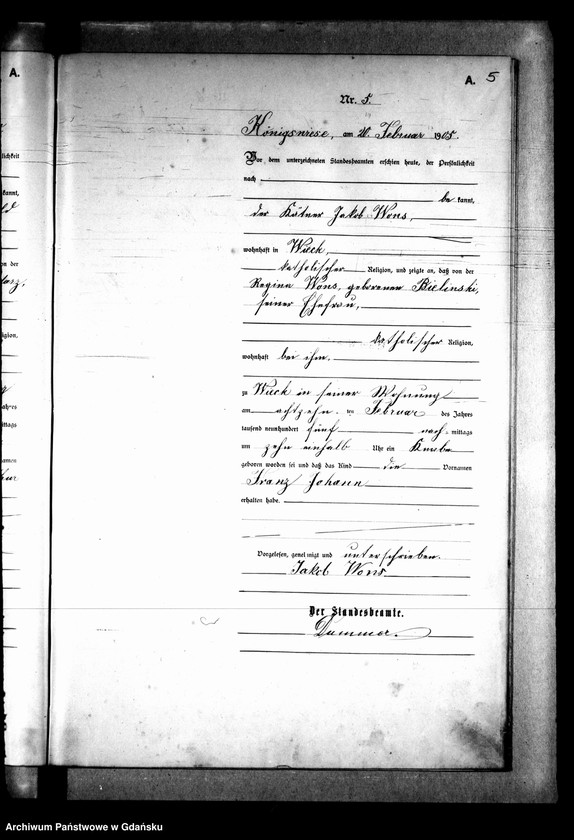 A.
A. 5
Nr. 5.
Königswiese, am 20. Februar 1905.
Vor dem unterzeichneten Standesbeamten erschien heute, der Persönlichkeit
nach
be kannt,
der Kätner Jakob Wons,
wohnhaft in Wieck,
katholischer Religion, und zeigte an, daß von der
Regina Wons, geborenen Bielinski,
seiner Ehefrau,
katholischer Religion,
wohnhaft bei ihm.
zu Wieck in seiner Wohnung
am achtzehn ten Februar des Jahres
tausend neunhundert fünf nach mittags
um zehn einhalb Uhr ein Knabe
geboren worden sei und daß das Kind die Vornamen
Franz Johann
erhalten habe.
Vorgelesen, genehmigt und unterschrieben.
Jakob Wons
Der Standesbeamte.
Archiwum Państwowe w Gdańsku